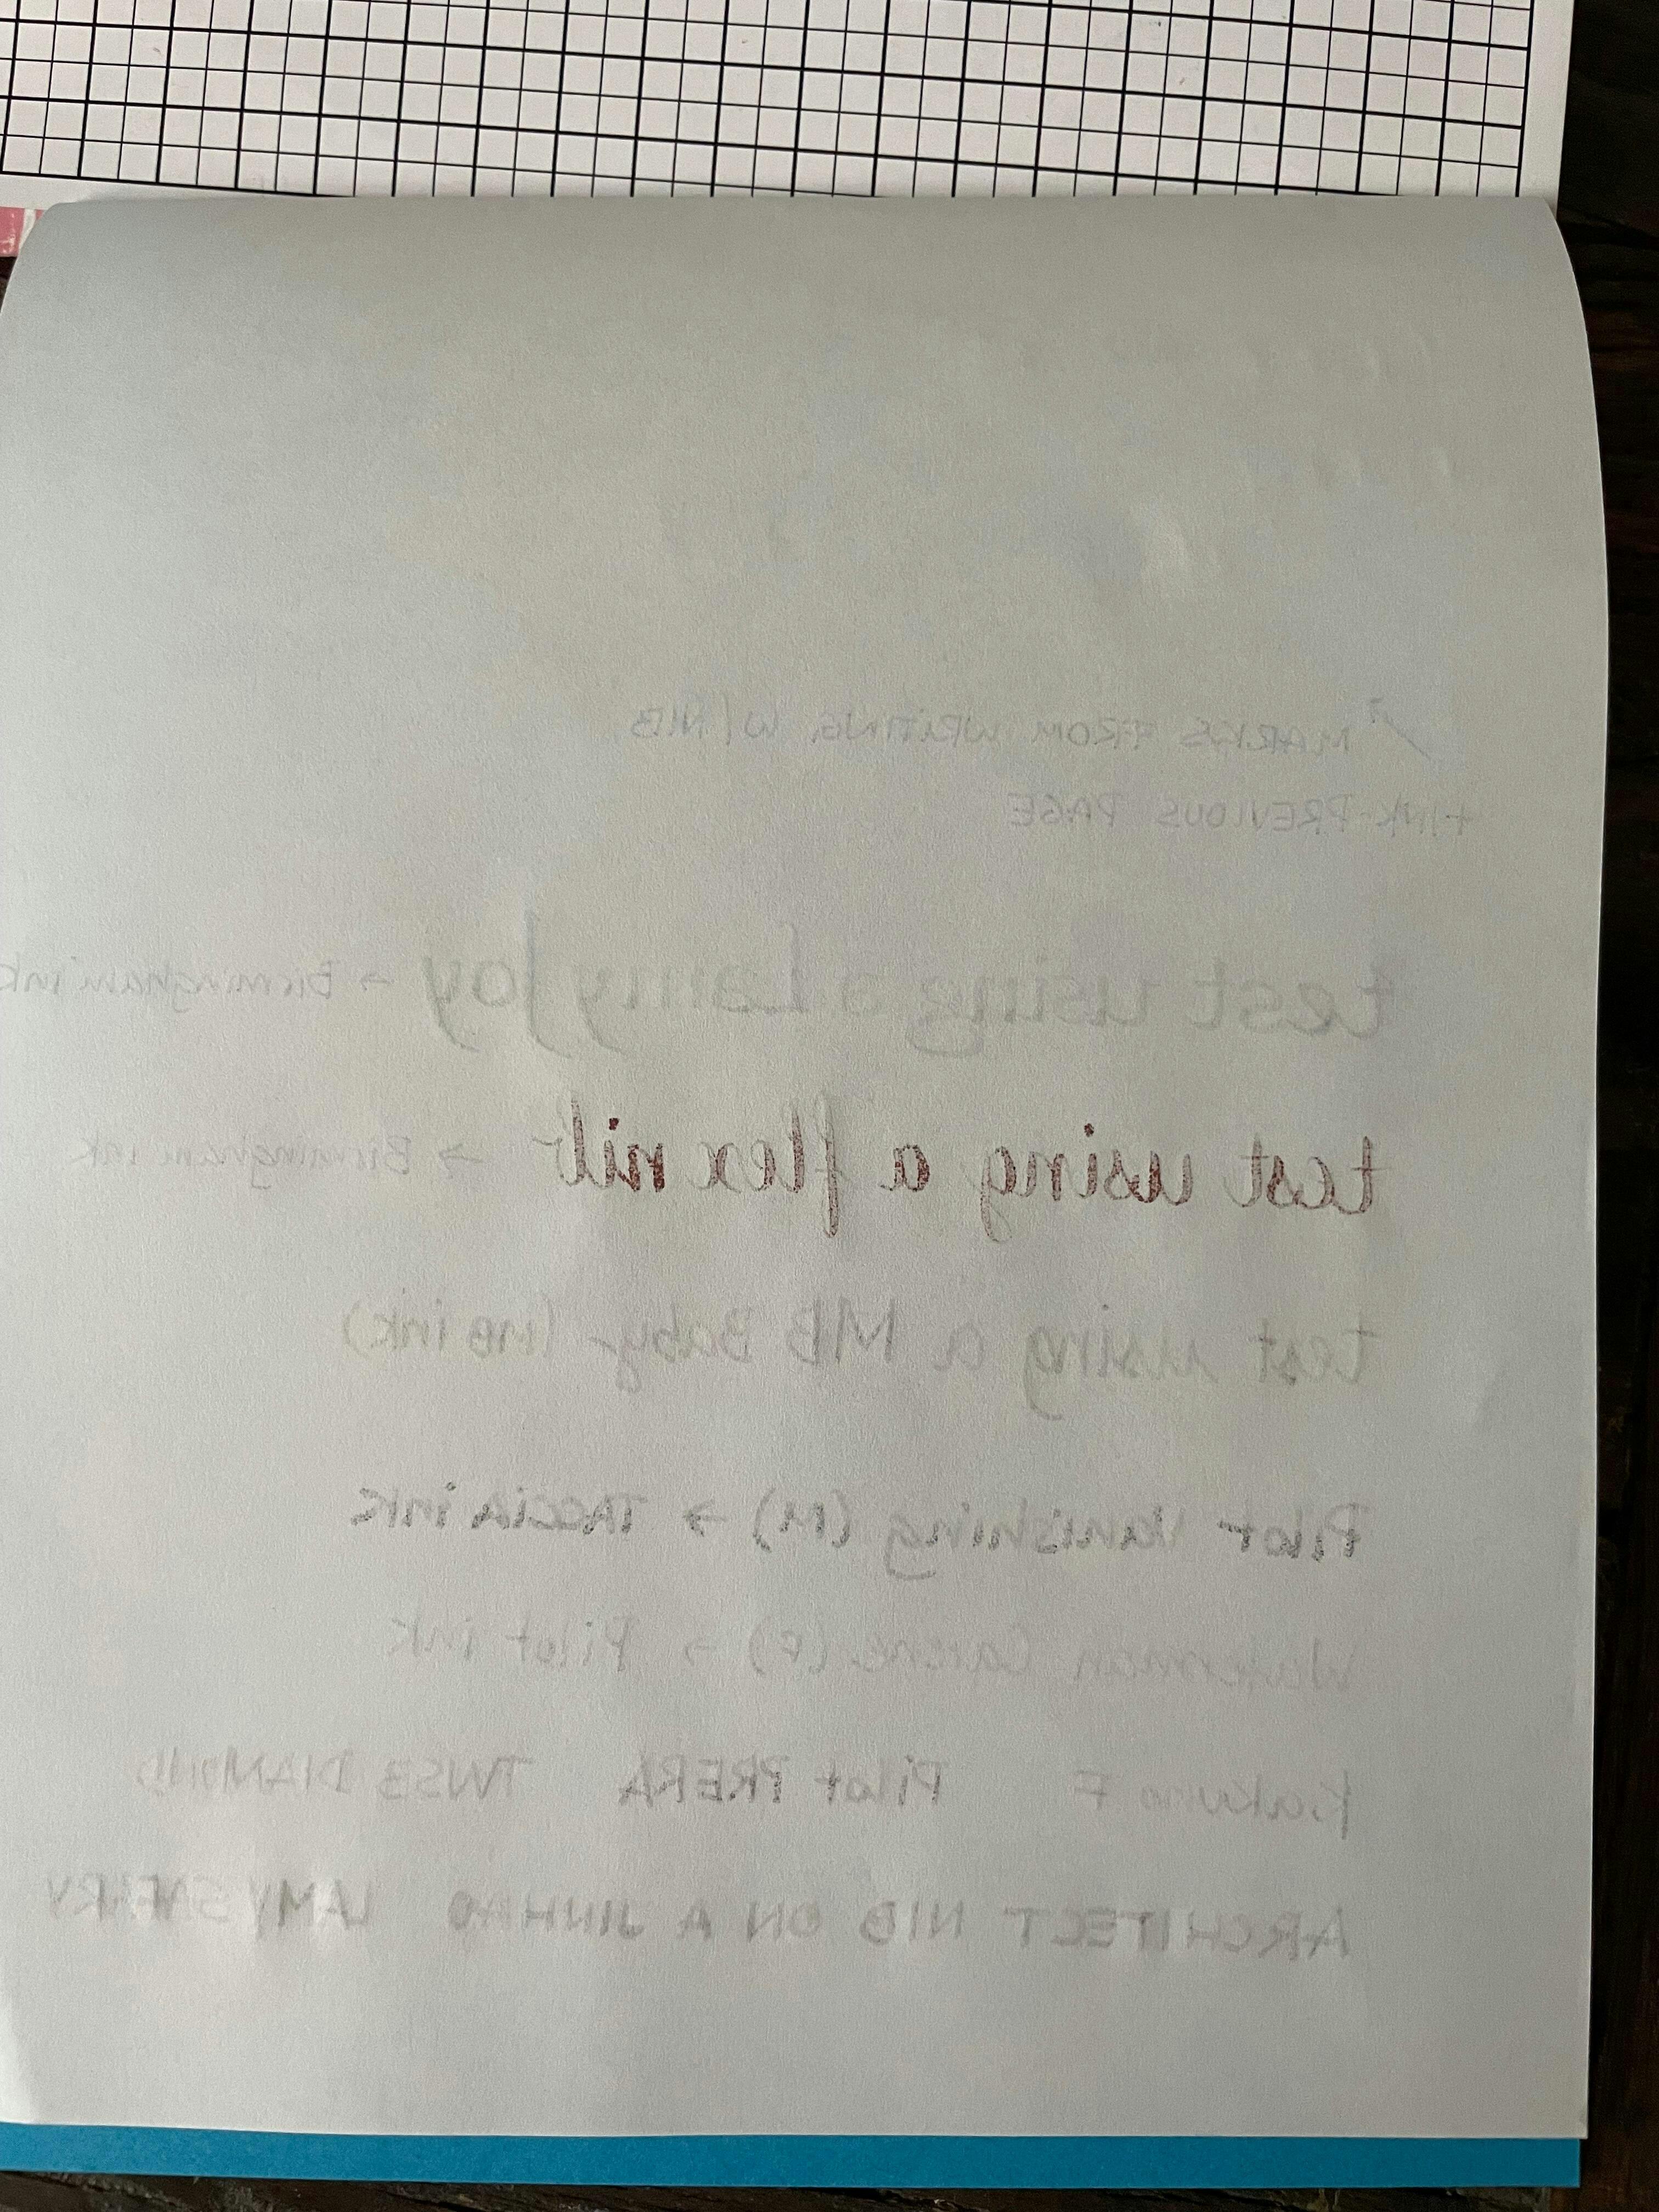 ↗ MARKS FROM WRITING W/NIB
+INK PREVIOUS PAGE
test using a Lamy Joy → Birmingham ink
test using a flex nib → Birmingham ink
test using a MB Baby (MB ink)
Pilot Vanishing (M) → TACCIA ink
Waterman Carene (F) → Pilot ink
Kakuno F Pilot PRERA TWSB DIAMOND
ARCHITECT NIB ON A JINHAO LAMY SAFARY